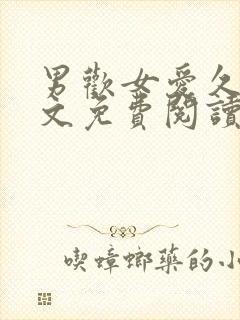 男歡女愛久
文免費閱讀
喫蟑螂藥的小